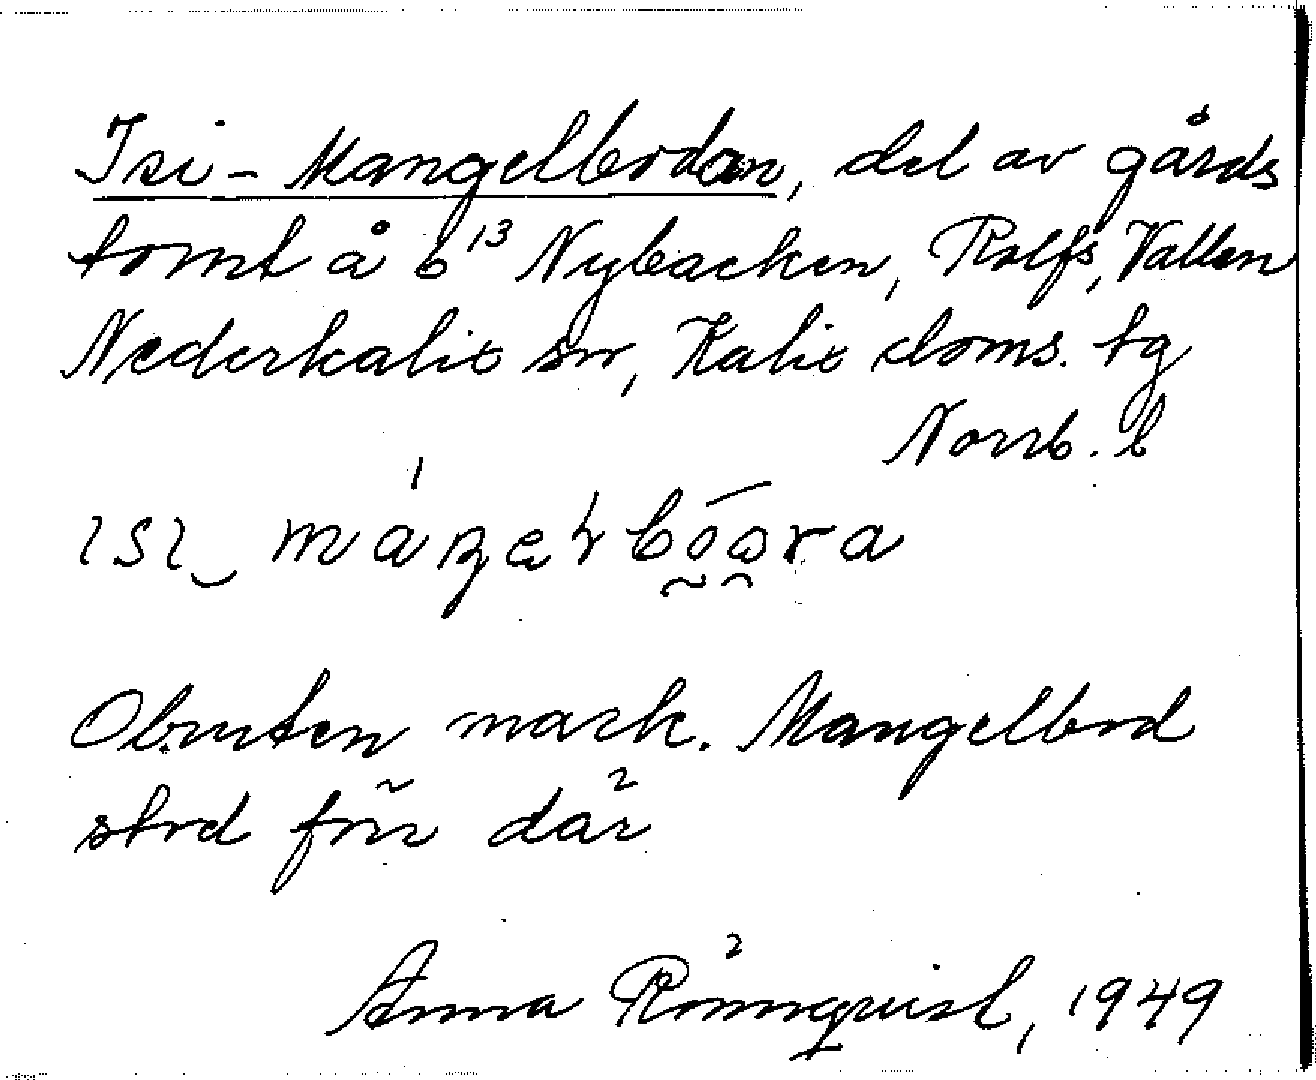 Isi-Mangelbodan, del av gårds
tomt å 6¹³ Nybacken, Rolfs, Vallen
Nederkalix sn, Kalix doms. tg
Norrb. l
ısı máŋeɫbóɷra
Obruten mark. Mangelbod
stod förr där
Anna Rönnqvist, 1949